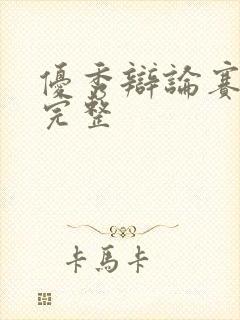 優秀辯論賽
完整
卡馬卡